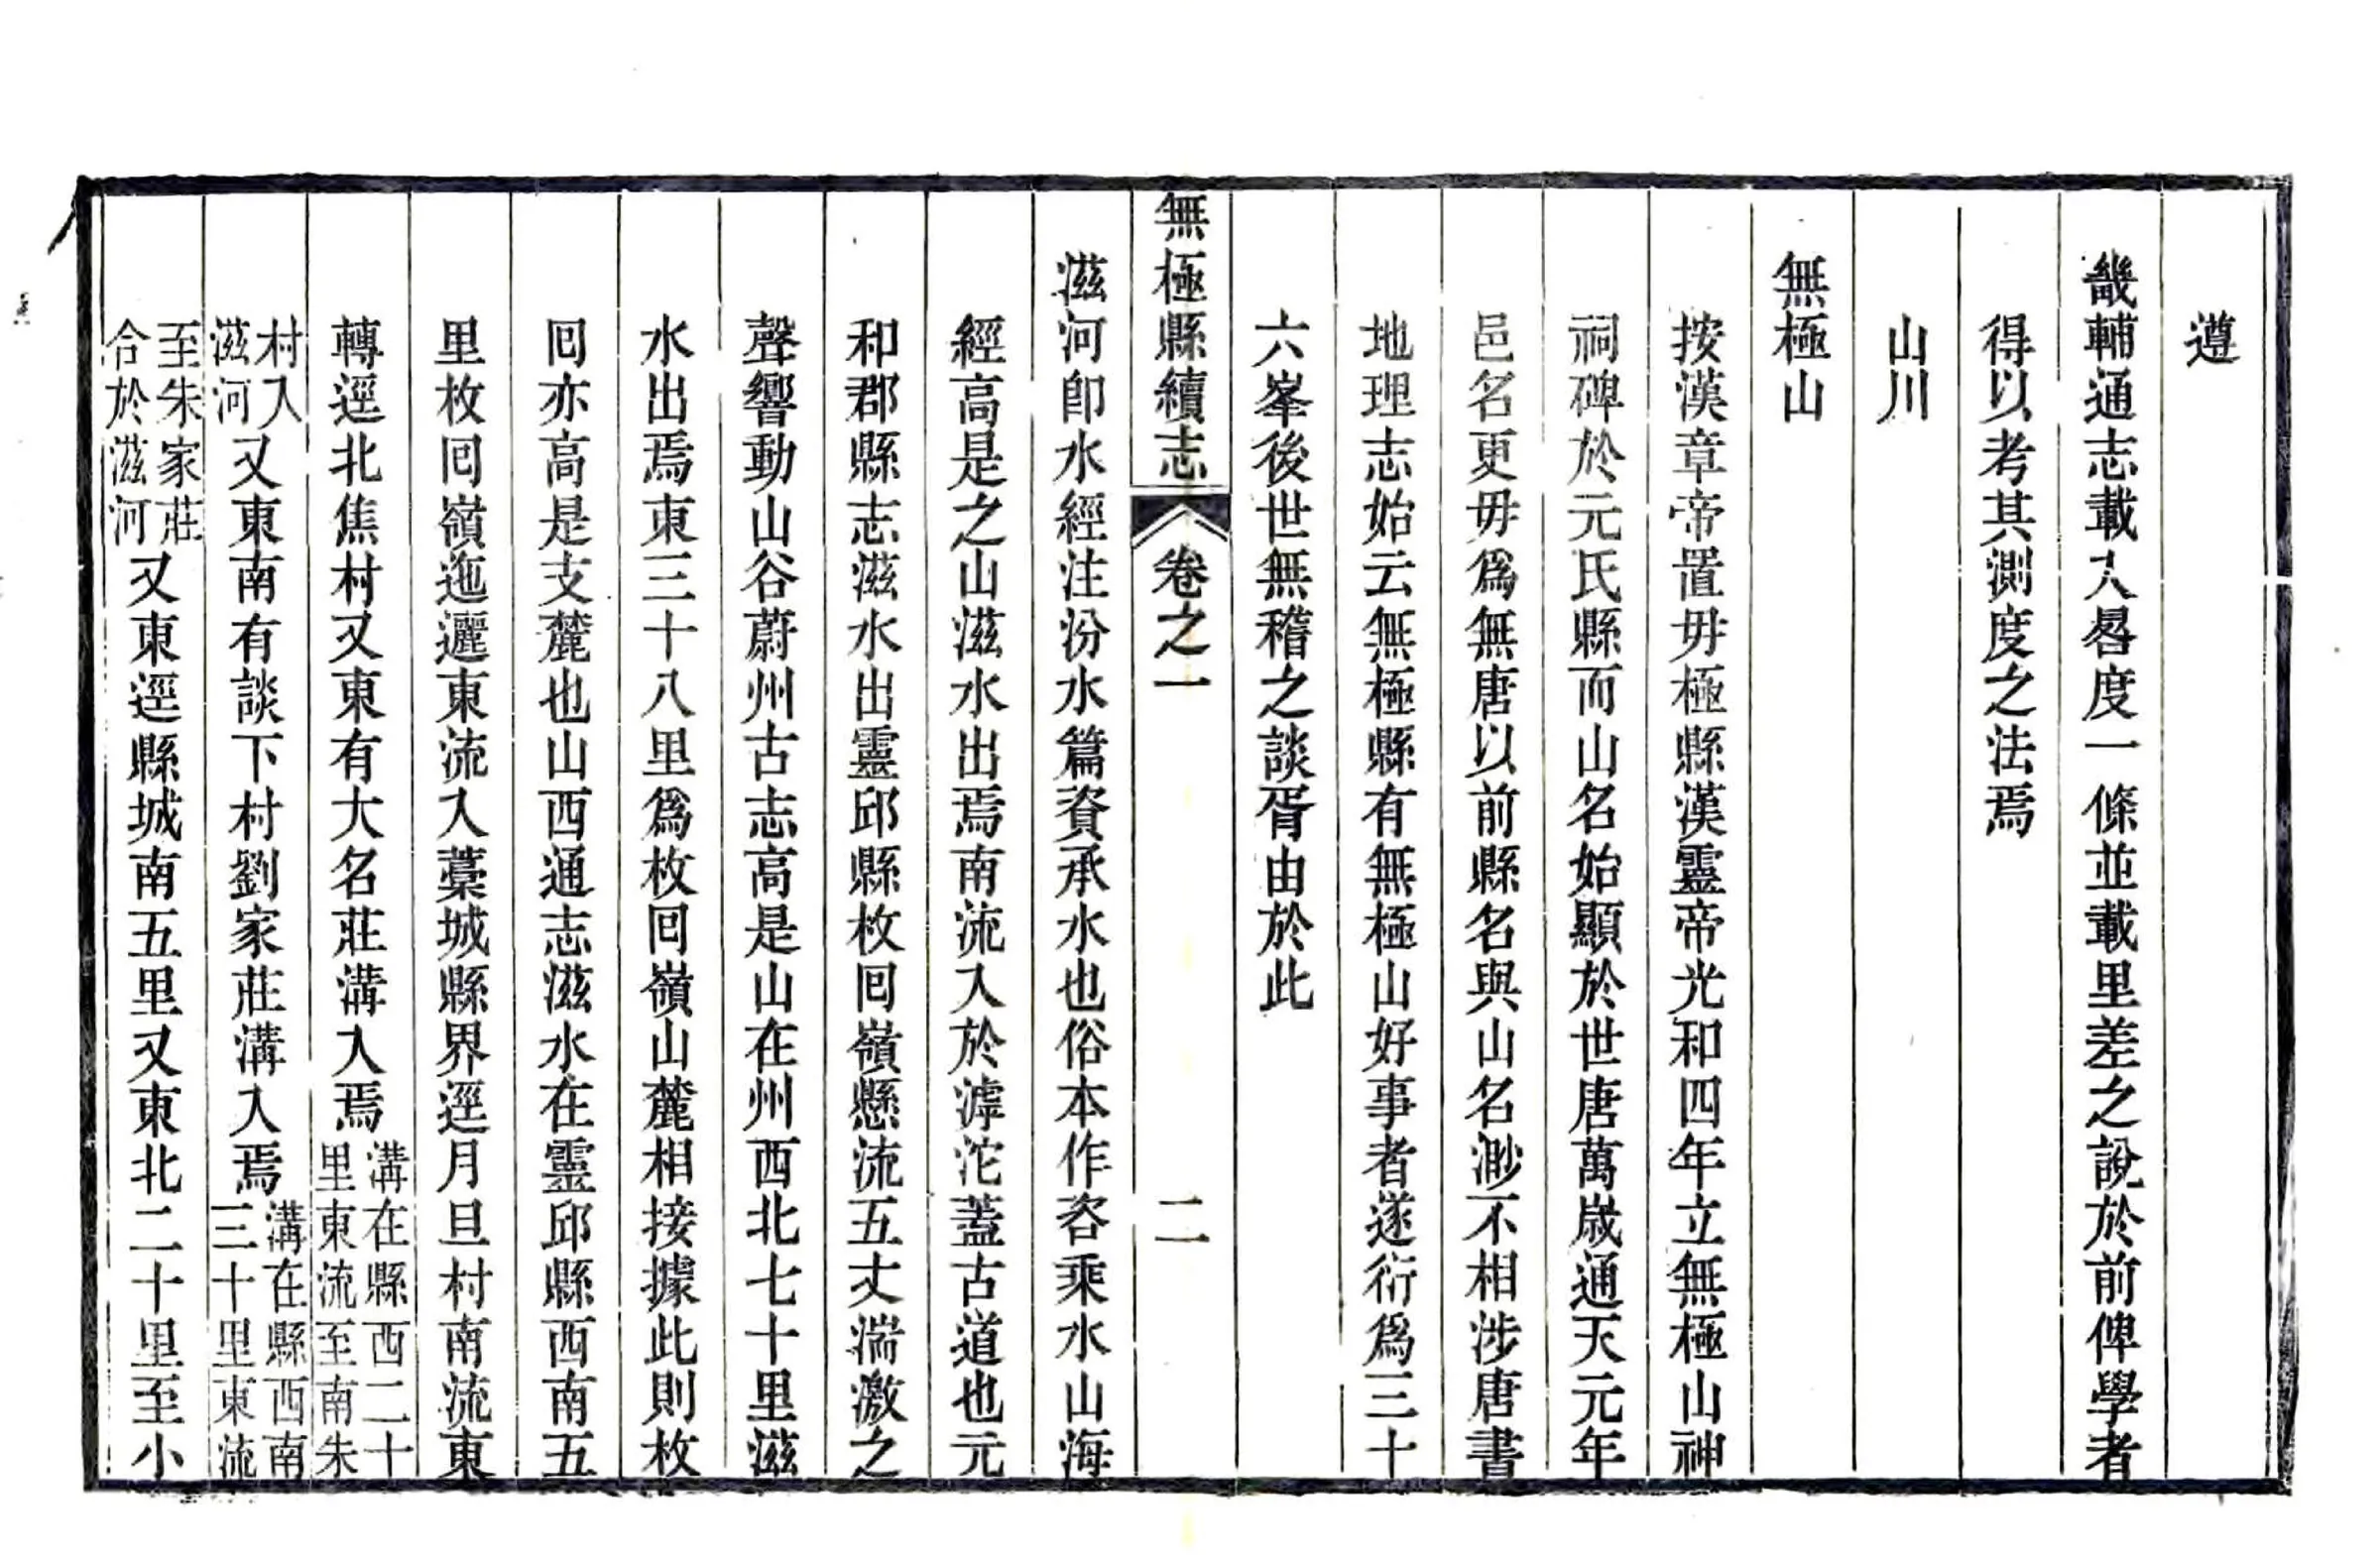 遵
畿輔通志載入晷度一條並載里差之說於前俾學者
得以考其測度之法焉
山川
無極山
按漢章帝置毋極縣漢靈帝光和四年立無極山神
祠碑於元氏縣而山名始顯於世唐萬歲通天元年
邑名更毋爲無唐以前縣名與山名渺不相涉唐書
地理志始云無極縣有無極山好事者遂衍爲三十
六峯後世無稽之談胥由於此
無極縣續志
卷之一
二
滋河卽水經注汾水篇資承水也俗本作咨乘水山海
經高是之山滋水出焉南流入於滹沱蓋古道也元
和郡縣志滋水出靈邱縣枚回嶺懸流五丈湍激之
聲響動山谷蔚州古志高是山在州西北七十里滋
水出焉東三十八里爲枚回嶺山麓相接據此則枚
回亦高是支麓也山西通志滋水在靈邱縣西南五
里枚回嶺迤邐東流入藁城縣界逕月旦村南流東
轉逕北焦村又東有大名莊溝入焉溝在縣西二十
里東流至南朱
村入
滋河又東南有談下村劉家莊溝入焉溝在縣西南
三十里東流
至朱家莊
合於滋河又東逕縣城南五里又東北二十里至小